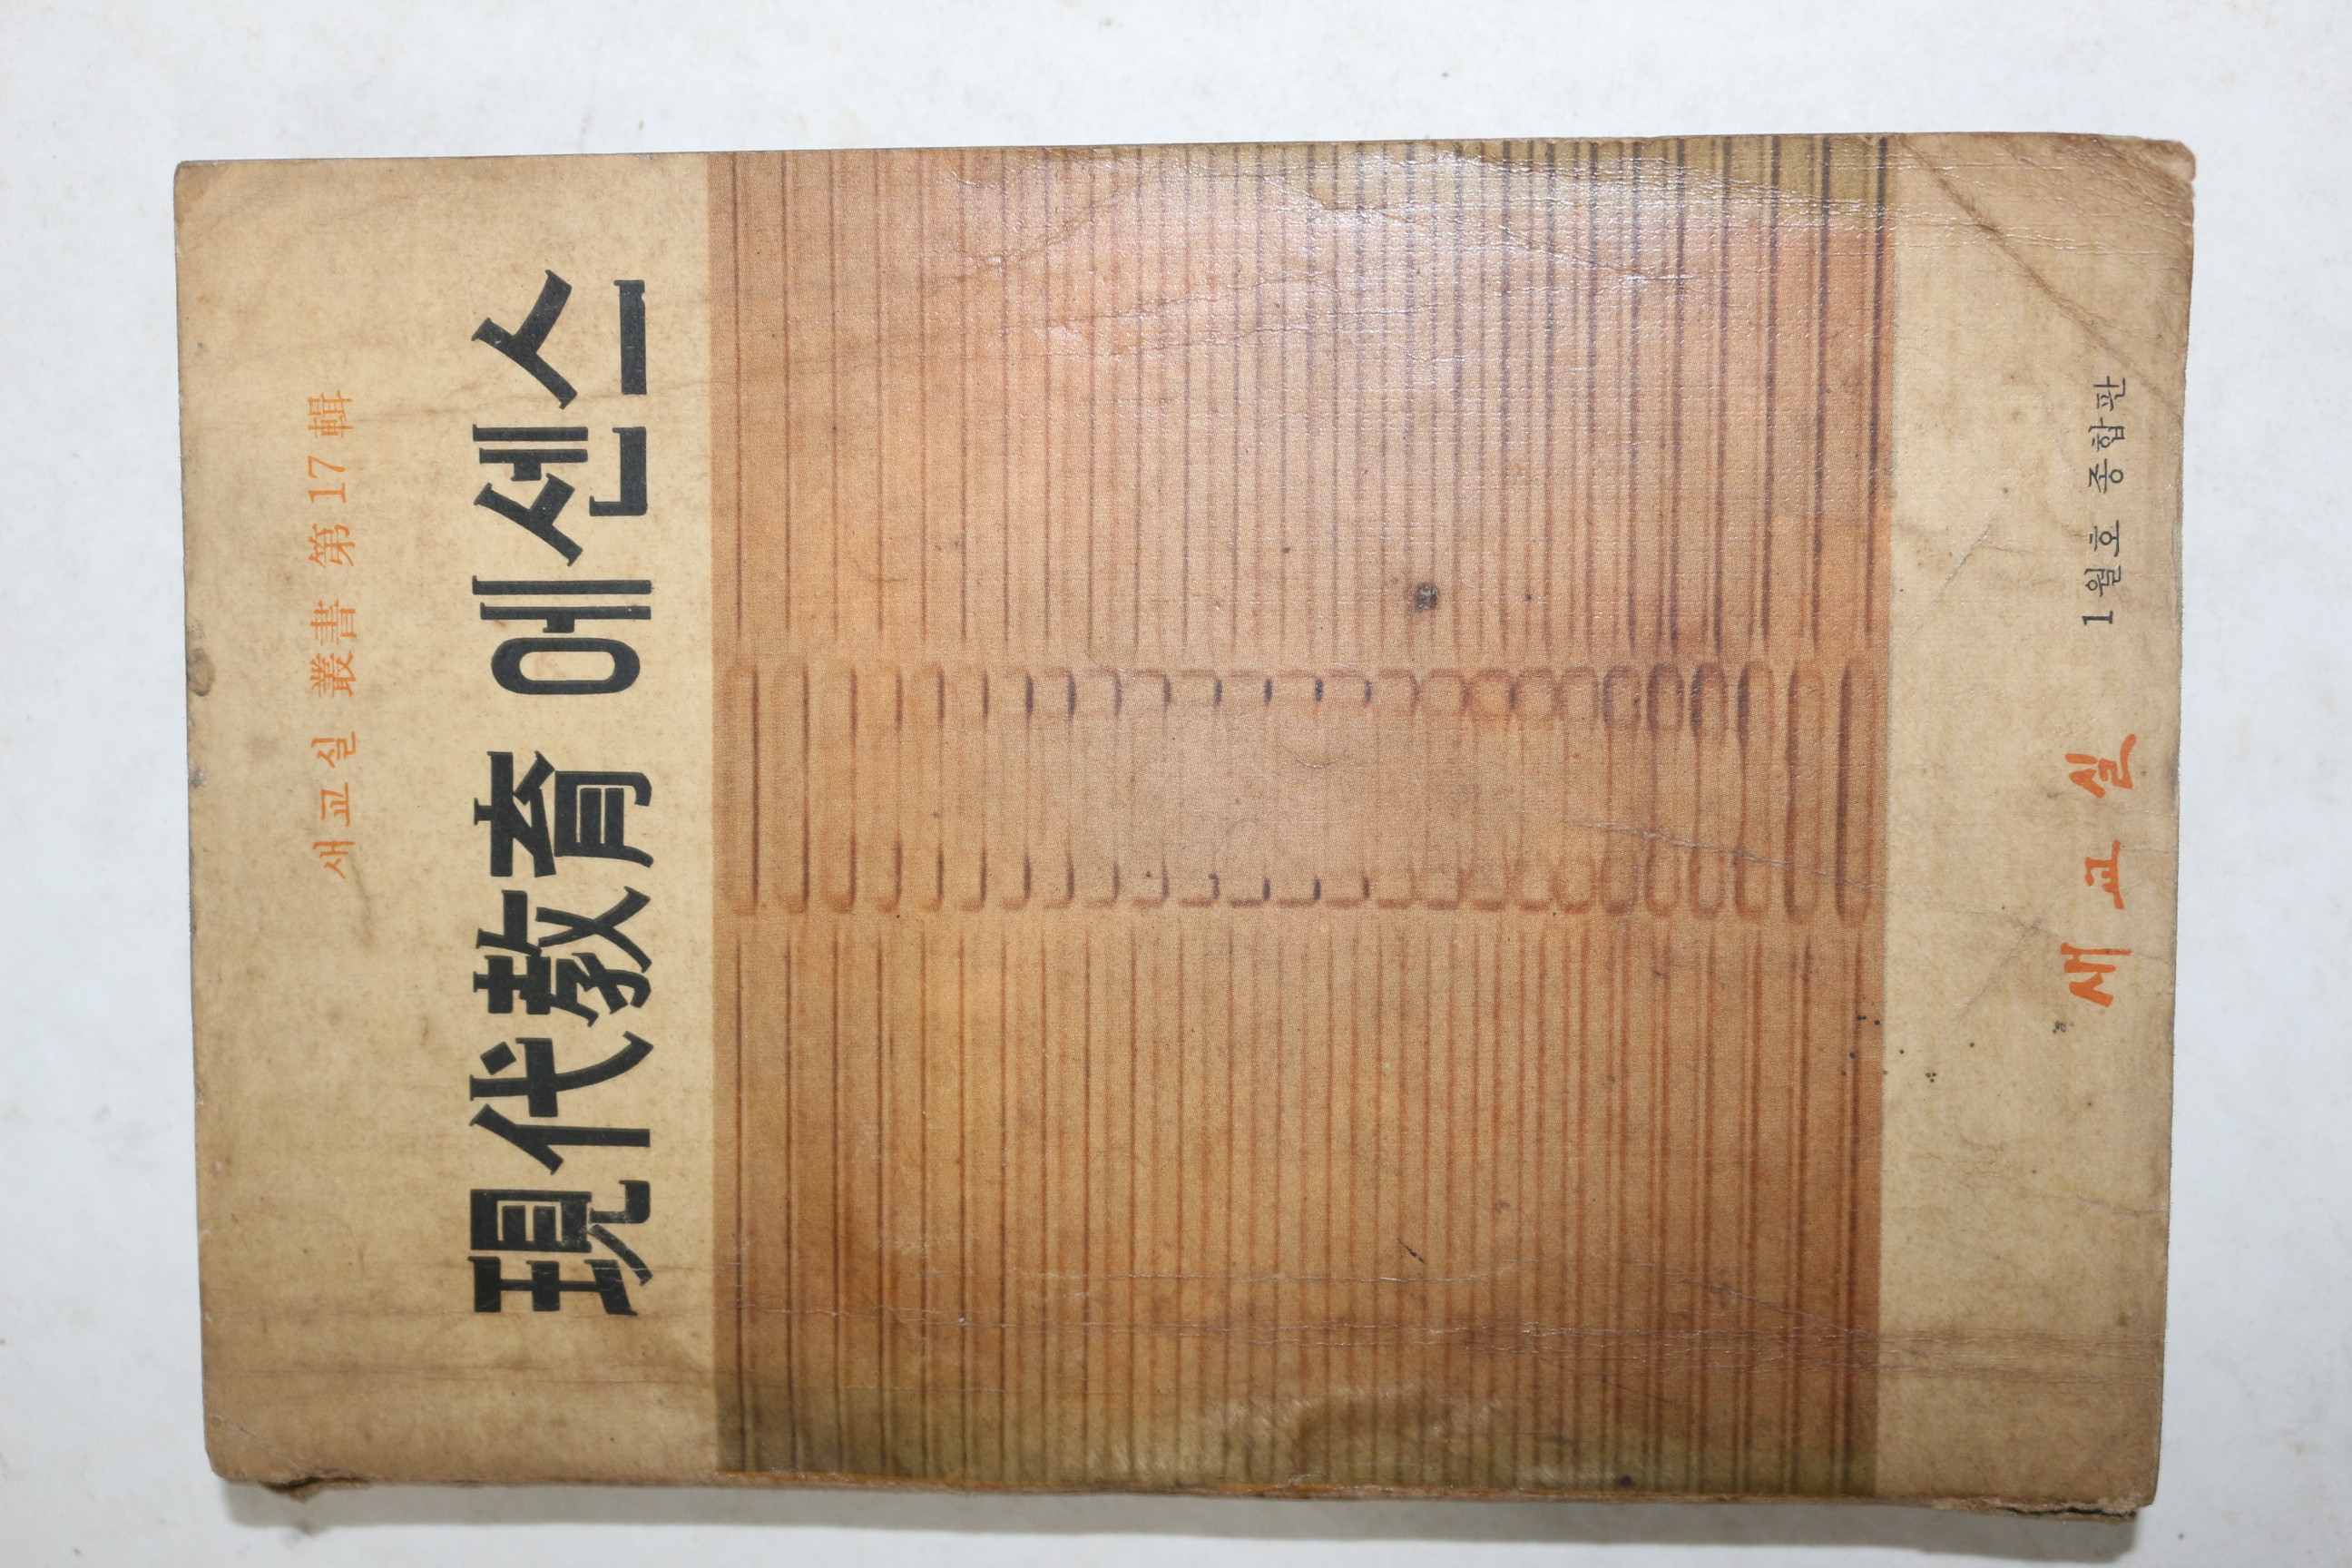 새교실 叢書 第17輯
現代敎育 에센스
새교실 1월호 종합판